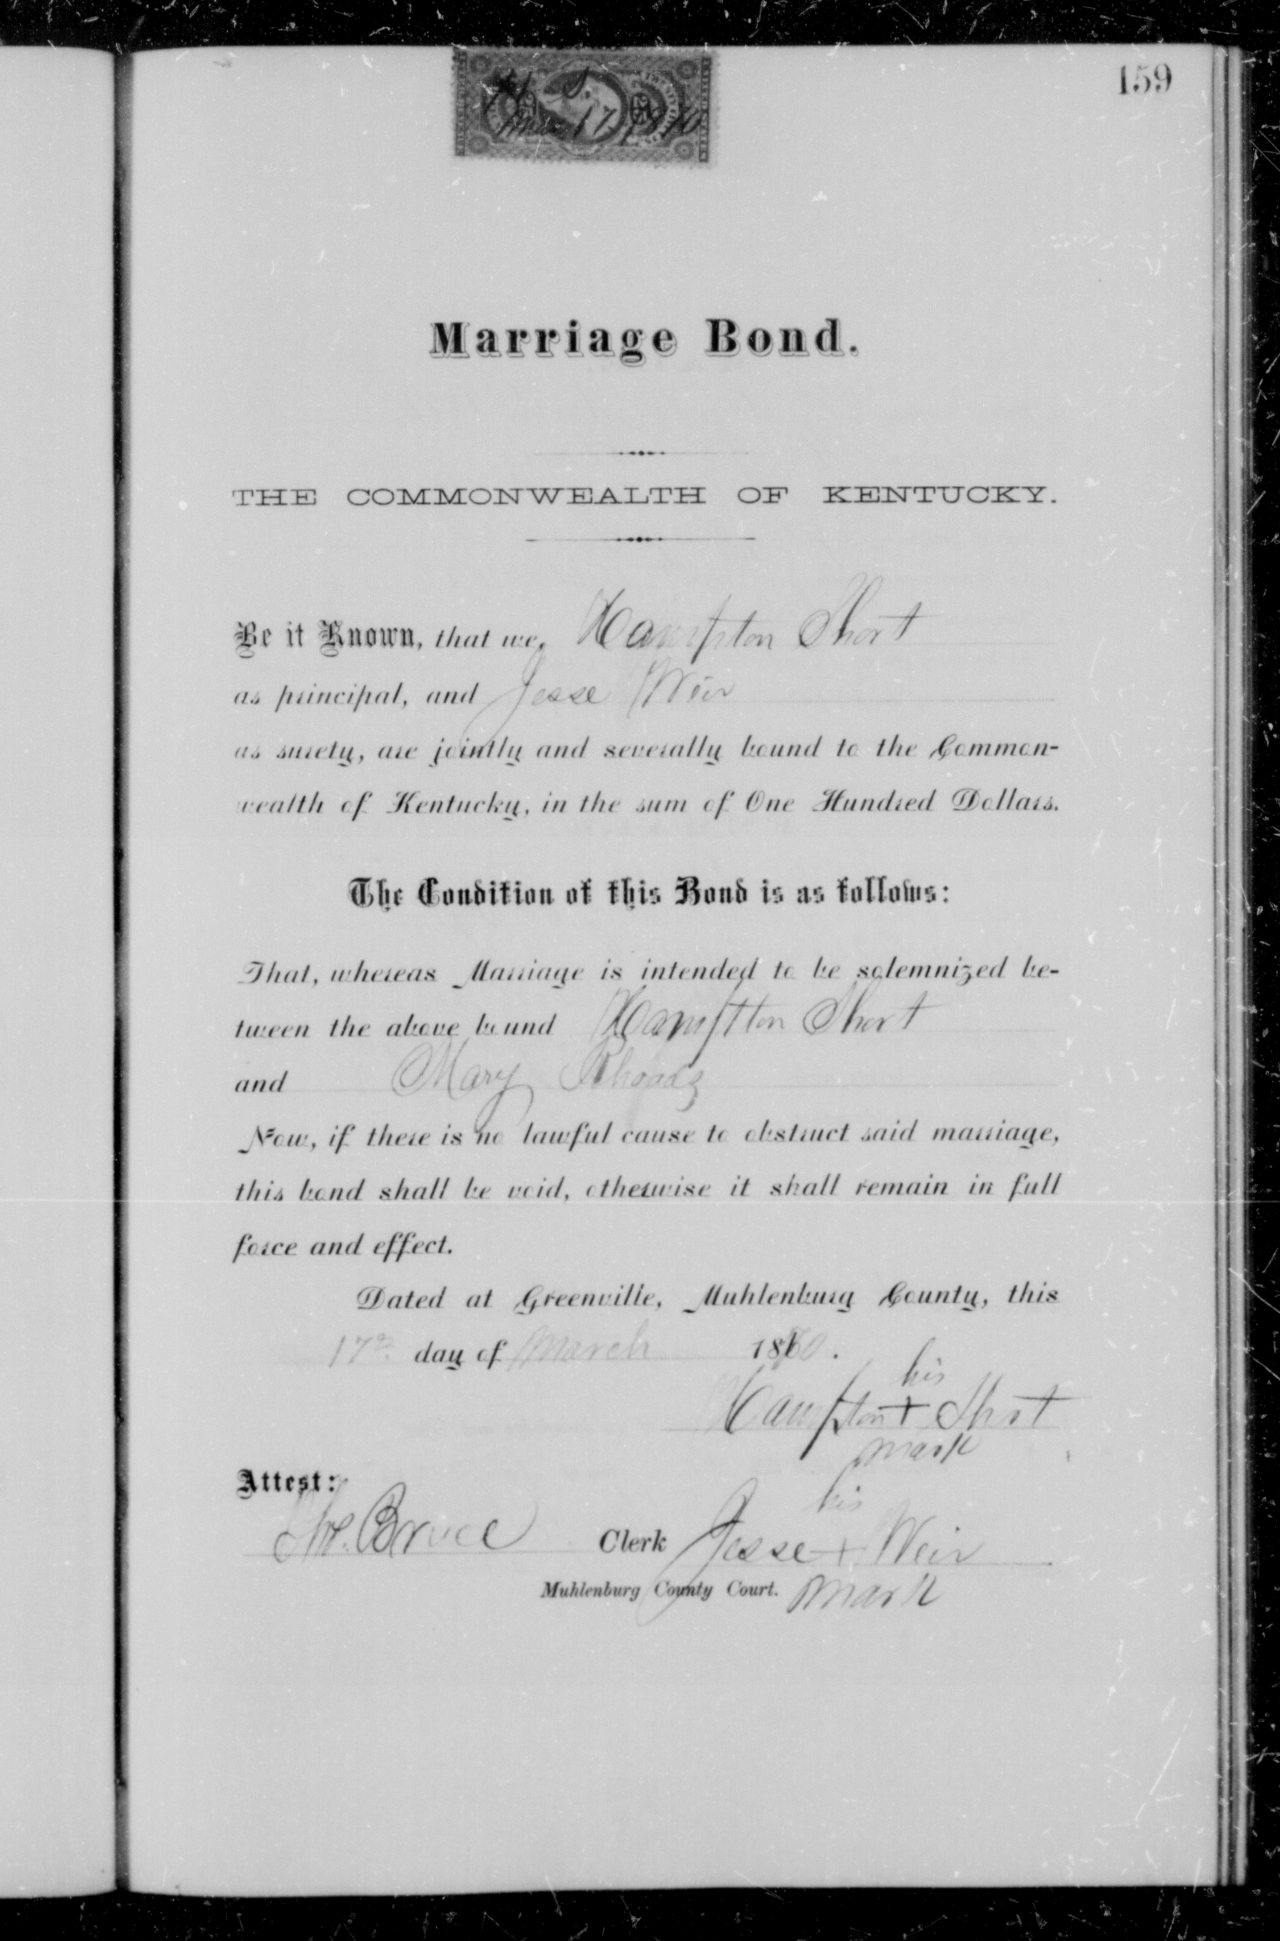 159
Mar 17 1870
Marriage Bond.
THE COMMONWEALTH OF KENTUCKY.
Be it Known, that we, Hampton Short
as principal, and Jesse Weir
as surety, are jointly and severally bound to the Common-
wealth of Kentucky, in the sum of One Hundred Dollars.
The Condition of this Bond is as follows:
That, whereas Marriage is intended to be solemnized be-
tween the above bound Hampton Short
and Mary Rhoads
Now, if there is no lawful cause to obstruct said marriage,
this bond shall be void, otherwise it shall remain in full
force and effect.
Dated at Greenville, Muhlenburg County, this
17th day of March 1870.
his
Hampton + Short
mark
Attest:
his
Tho. Bruce Clerk Jesse + Weir
Muhlenburg County Court. mark